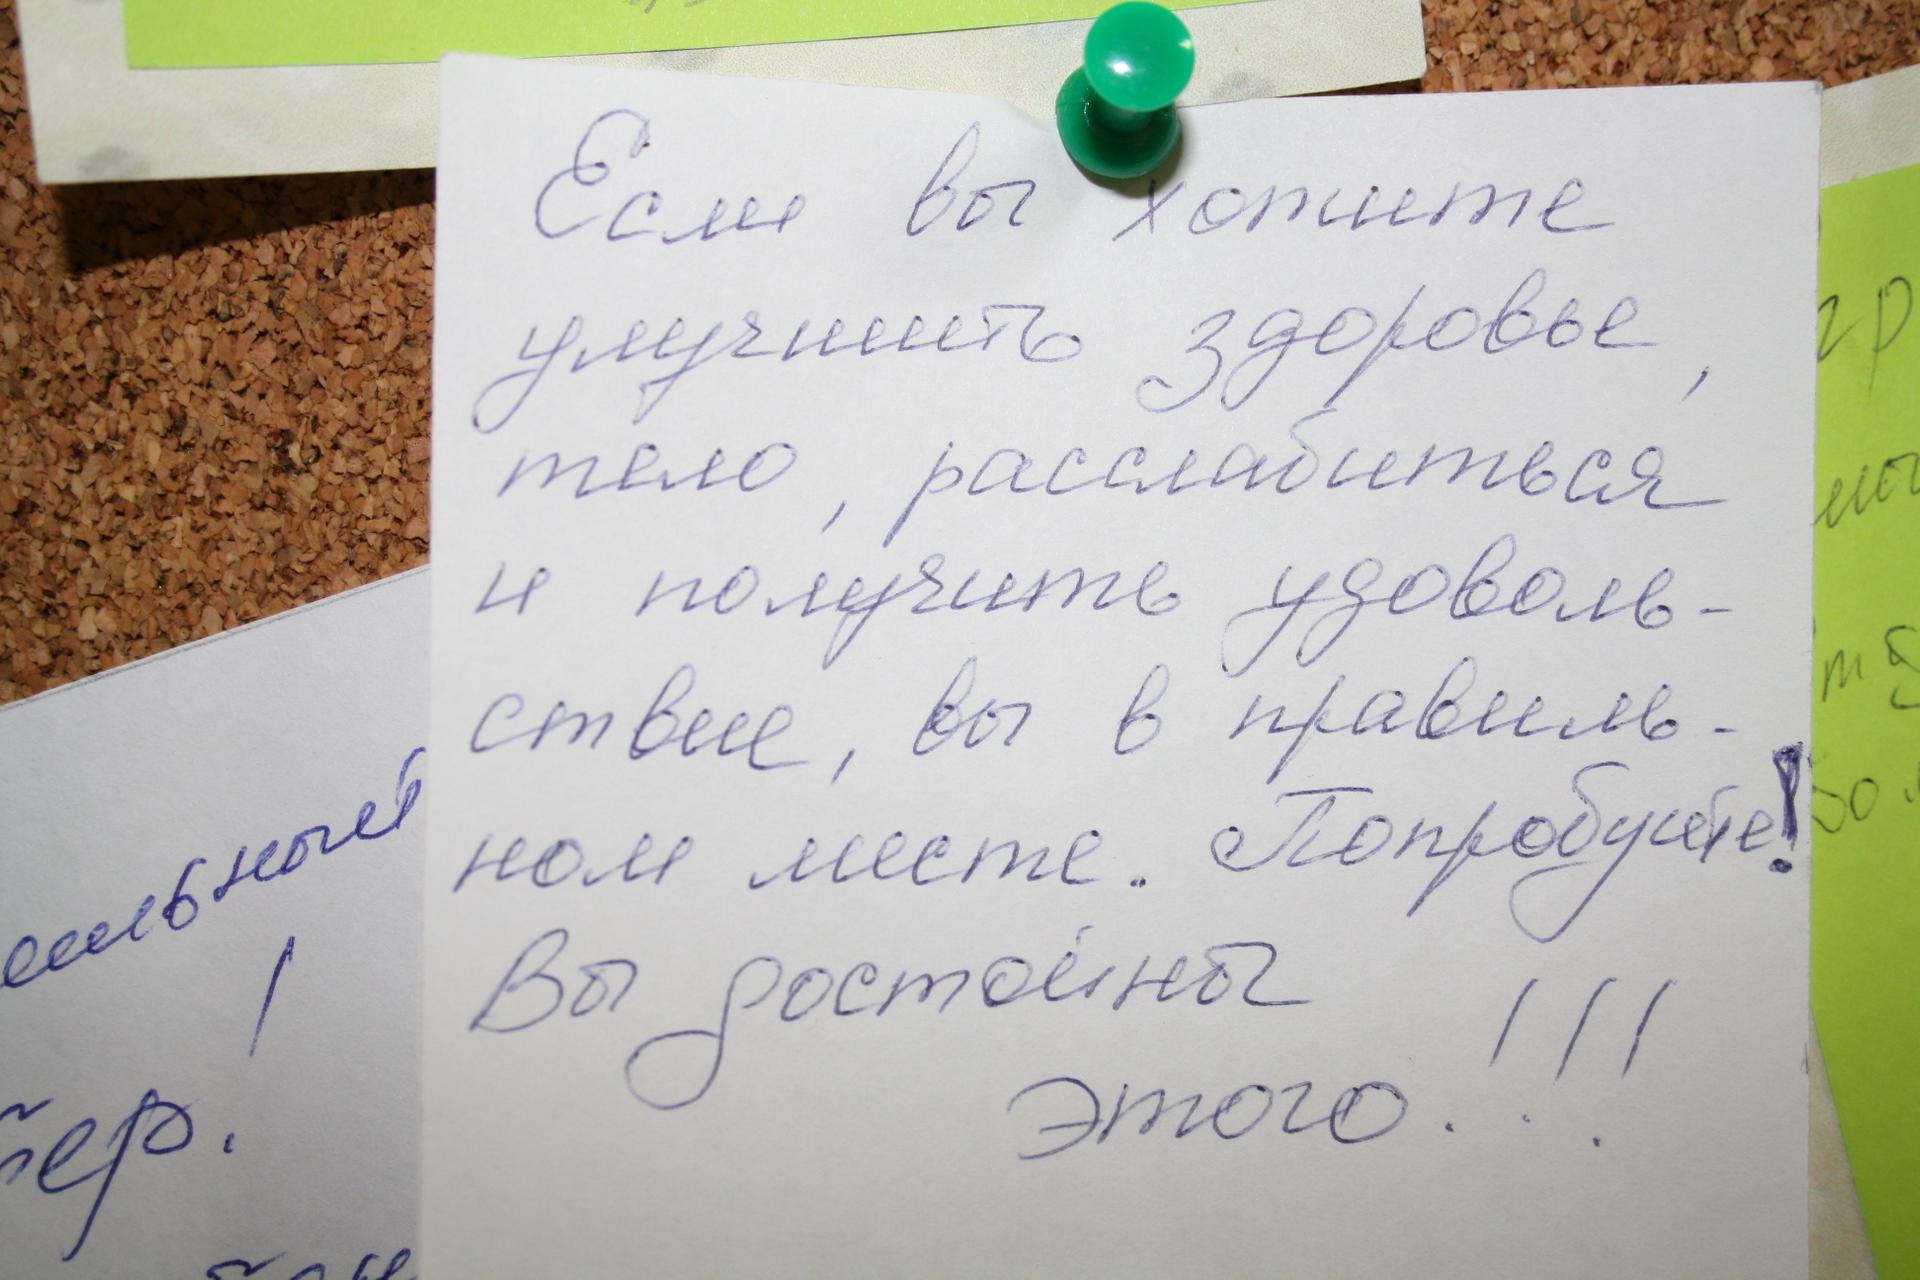 Если вы хотите
улучшить здоровье,
тело, расслабиться
и получить удоволь-
ствие, вы в правиль-
ном месте. Попробуйте!
Вы достойны
этого!!!